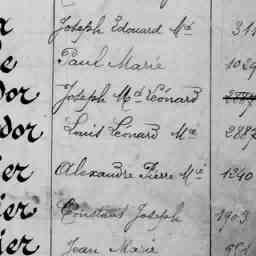 Joseph Edouard Mie 314
e Paul Marie 1029
dor Joseph Md Léonard 2887
dor Louis Léonard Mie 2887
ier Alexandre Pierre Mie 1240
ier Constant Joseph 1903
ier Jean Marie